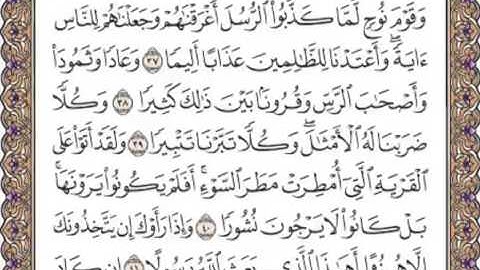 وَقَوْمَ نُوحٍ لَّمَّا كَذَّبُوا۟ ٱلرُّسُلَ أَغْرَقْنَٰهُمْ وَجَعَلْنَٰهُمْ لِلنَّاسِ
ءَايَةً ۖ وَأَعْتَدْنَا لِلظَّٰلِمِينَ عَذَابًا أَلِيمًا ٣٧ وَعَادًا وَثَمُودَا۟
وَأَصْحَٰبَ ٱلرَّسِّ وَقُرُونًۢا بَيْنَ ذَٰلِكَ كَثِيرًا ٣٨ وَكُلًّا
ضَرَبْنَا لَهُ ٱلْأَمْثَٰلَ ۖ وَكُلًّا تَبَّرْنَا تَتْبِيرًا ٣٩ وَلَقَدْ أَتَوْا۟ عَلَى
ٱلْقَرْيَةِ ٱلَّتِىٓ أُمْطِرَتْ مَطَرَ ٱلسَّوْءِ ۚ أَفَلَمْ يَكُونُوا۟ يَرَوْنَهَا ۚ
بَلْ كَانُوا۟ لَا يَرْجُونَ نُشُورًا ٤٠ وَإِذَا رَأَوْكَ إِن يَتَّخِذُونَكَ
إِلَّا هُزُوًا أَهَٰذَا ٱلَّذِى بَعَثَ ٱللَّهُ رَسُولًا ٤١ إِن كَادَ